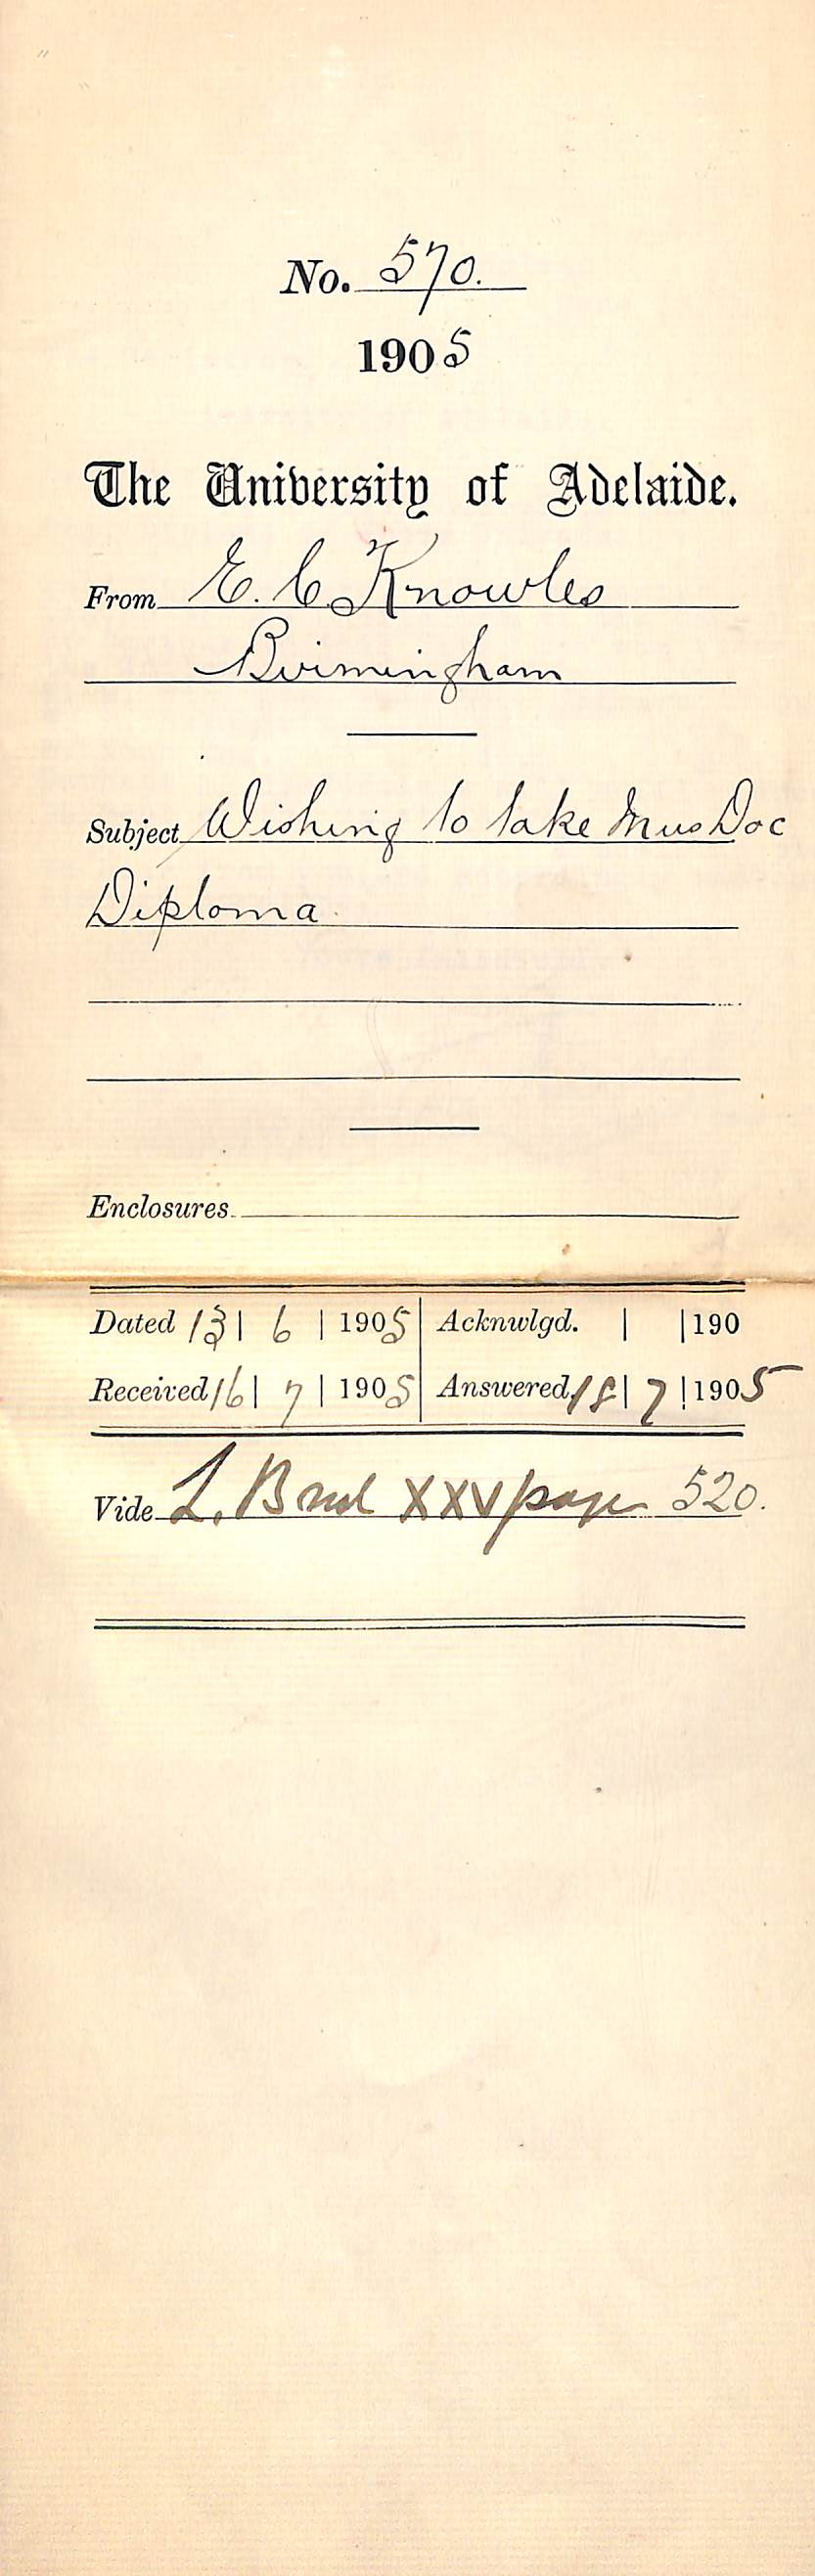 No. 570.
1905
The University of Adelaide.
From E. C. Knowles
Birmingham
Subject Wishing to take Mus Doc
Diploma.
Enclosures
Dated 13 | 6 | 1905 | Acknwlgd. | | 190
Received 16 | 7 | 1905 | Answered 18 | 7 | 1905
Vide L. Book XXV page 520.